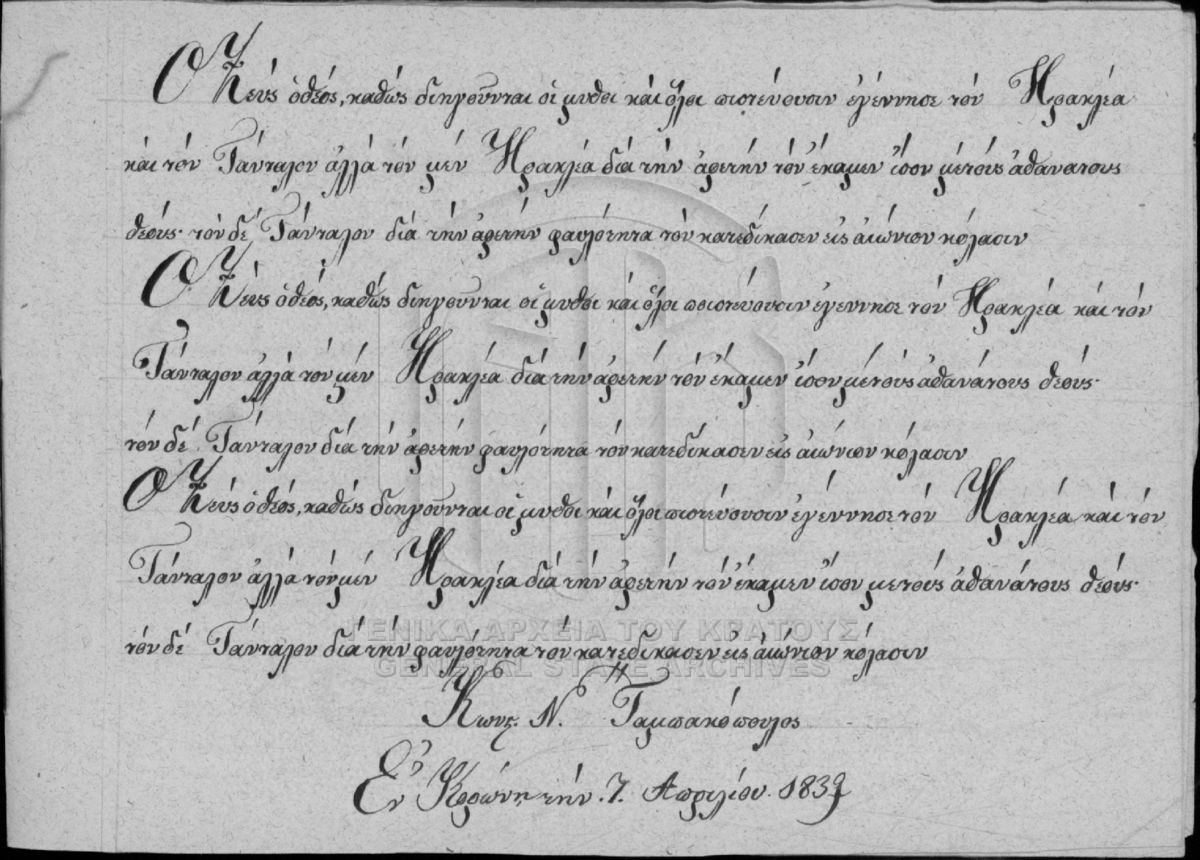 Ο Ζεύς ὁ θεός, καθώς διηγοῦνται οἱ μυθοι και ὅλοι πιστεύουσιν ἐγέννησε τόν Ἡρακλέα
και τόν Τάνταλον ἀλλά τόν μέν Ἡρακλέα διά τήν ἀρετήν τόν ἔκαμεν ἴσον μέ τούς ἀθανατους
θεούς· τόν δέ Τάνταλον διά τήν ἀρετήν φαυλότητα τόν κατεδίκασεν εἰς αἰώνιον κόλασιν
Ο Ζεύς ὁ θεός, καθώς διηγοῦνται οἱ μυθοι και ὅλοι πιστεύουσιν ἐγέννησε τόν Ἡρακλέα και τόν
Τάνταλον ἀλλά τόν μέν Ἡρακλέα διά τήν ἀρετήν τόν ἔκαμεν ἴσον μέ τούς ἀθανάτους θεούς·
τόν δέ Τάνταλον διά τήν ἀρετήν φαυλότητα τόν κατεδίκασεν εἰς αἰώνιον κόλασιν
Ο Ζεύς ὁ θεός, καθώς διηγοῦνται οἱ μυθοι και ὅλοι πιστεύουσιν ἐγέννησε τόν Ἡρακλέα και τόν
Τάνταλον ἀλλά τόν μέν Ἡρακλέα διά τήν ἀρετήν τόν ἔκαμεν ἴσον μέ τούς ἀθανάτους θεούς·
τόν δέ Τάνταλον διά τήν φαυλότητα τόν κατεδίκασεν εἰς αἰώνιον κόλασιν
ΓΕΝΙΚΑ ΑΡΧΕΙΑ ΤΟΥ ΚΡΑΤΟΥΣ
GENERAL STATE ARCHIVES
Κωνς. Ν. Ταμπακόπουλος
Ἐν Κορώνῃ τήν 7. Απριλίου 1839